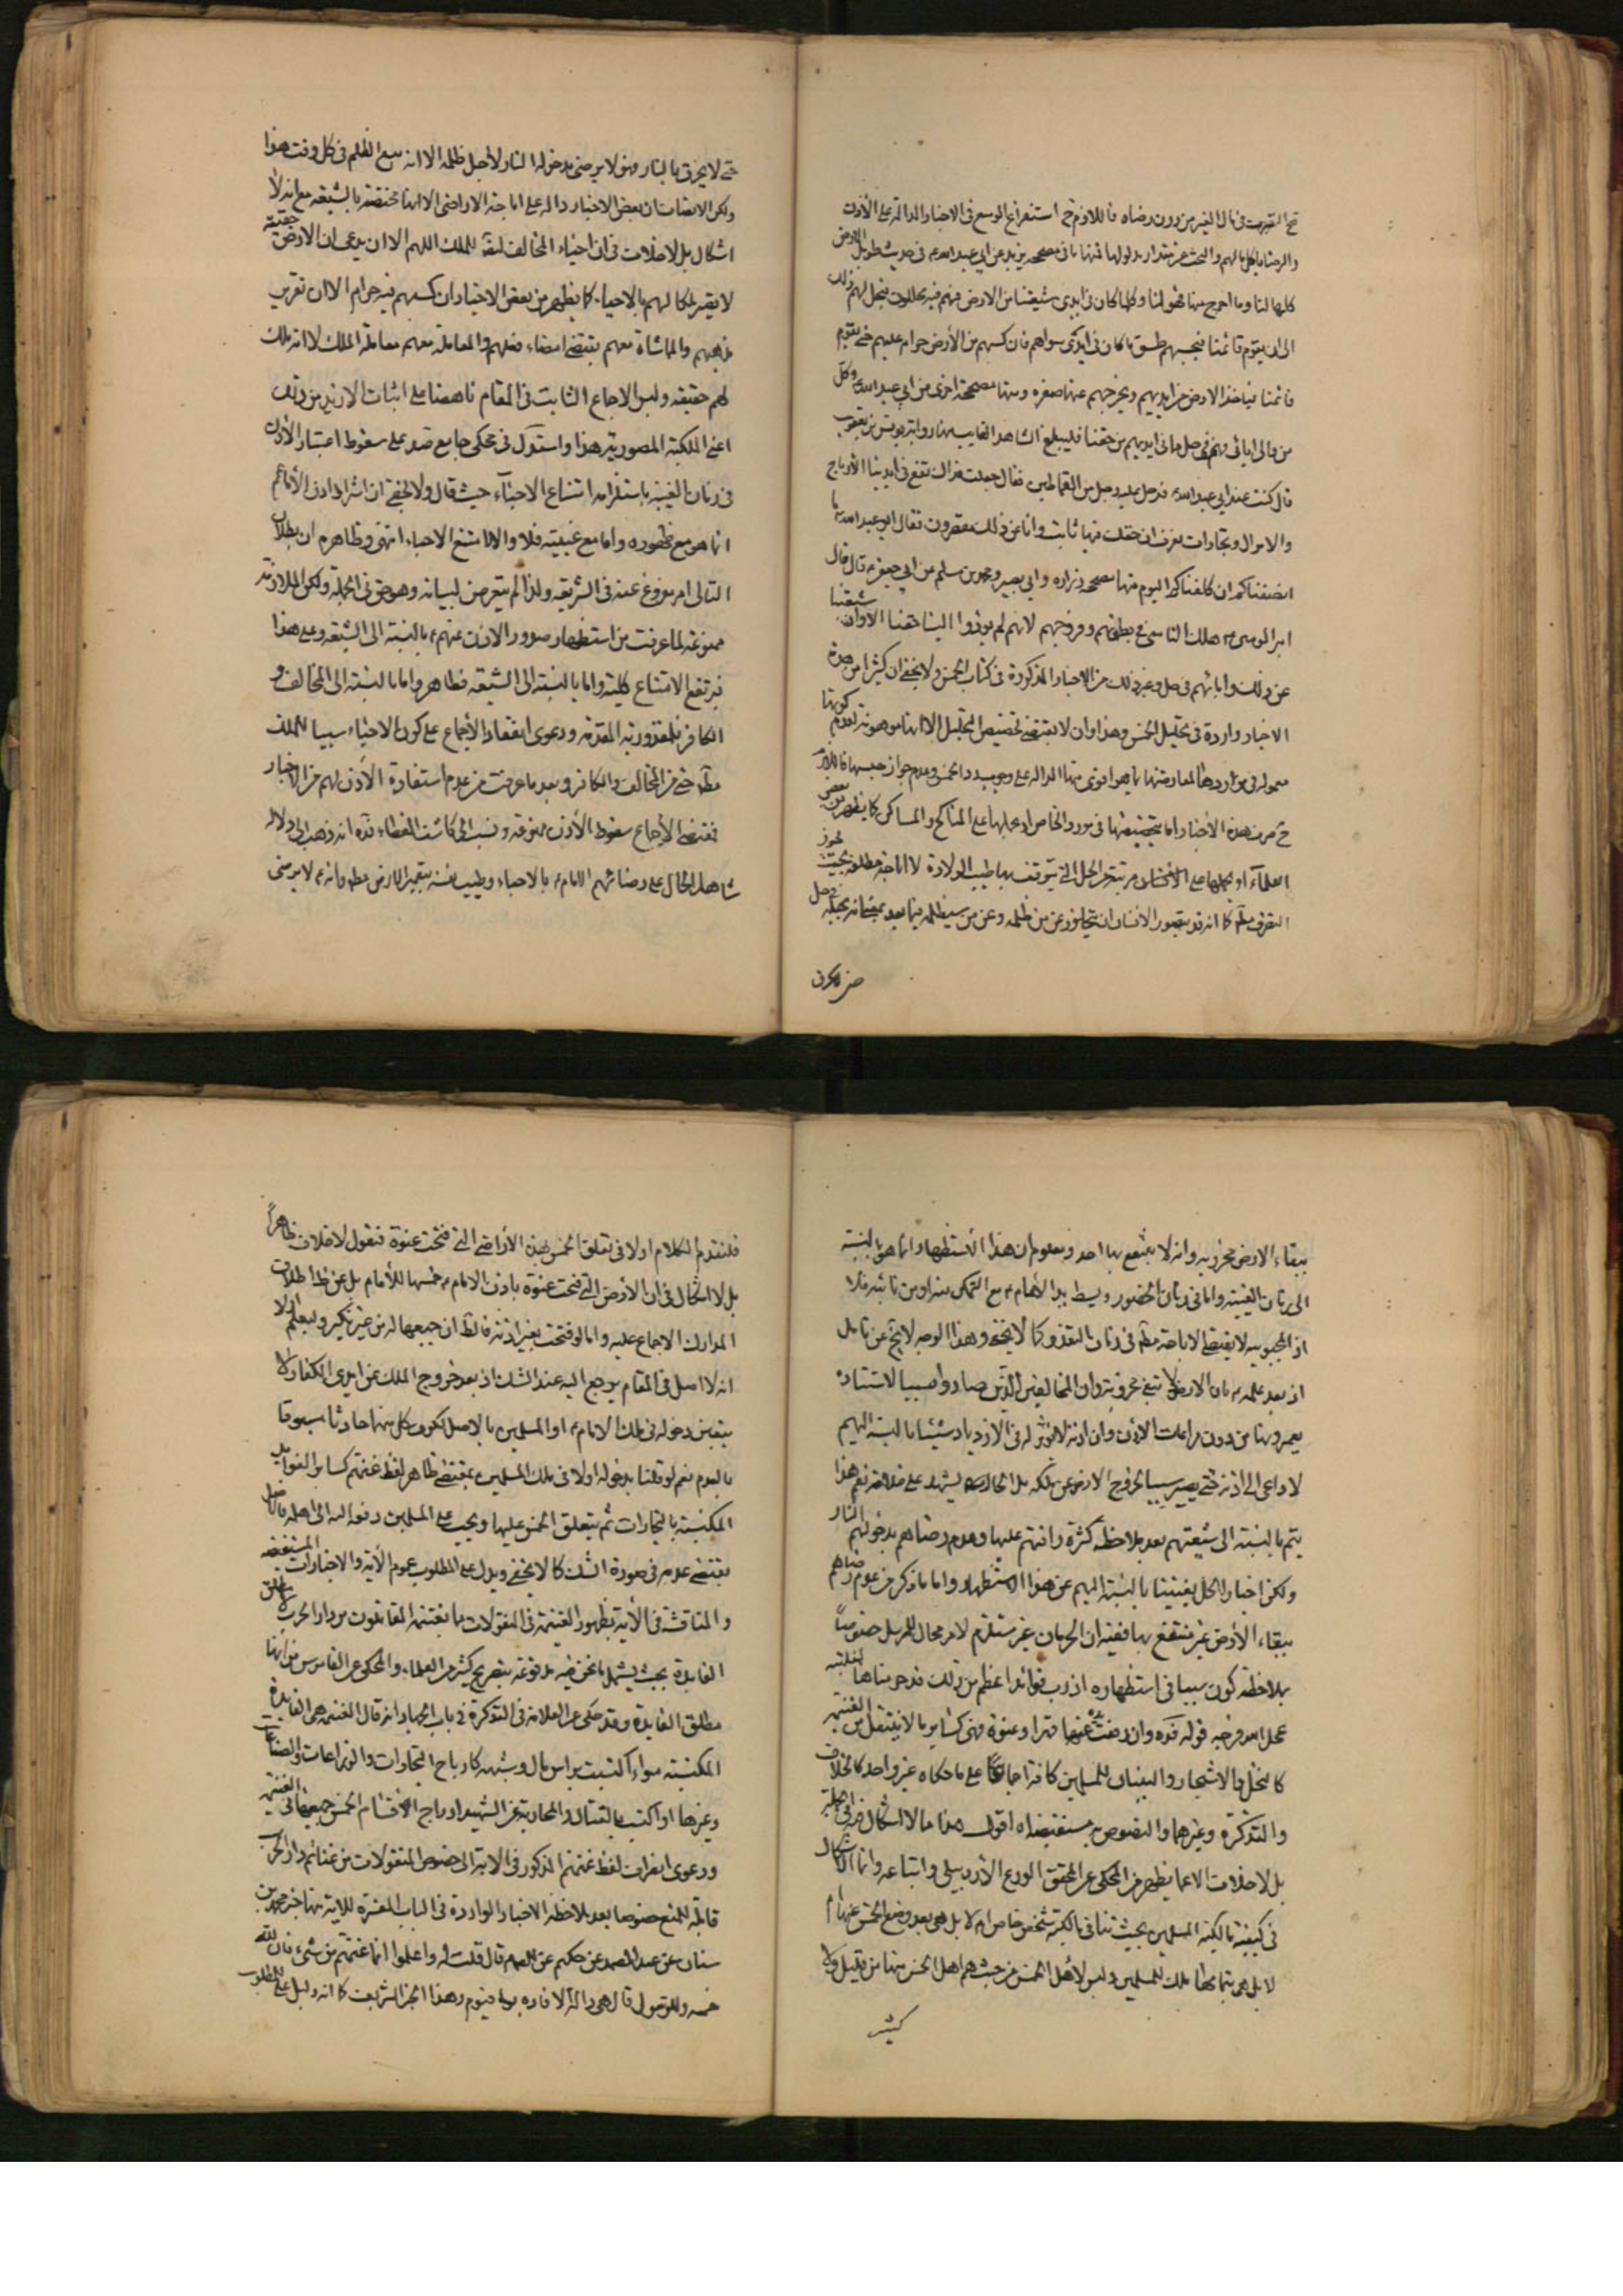 قبح التصرف في مال الغير من دون رضاه فاللازم ح استفراغ الوسع في الاخبار الدالة على الأذن
والرضا بالكل لهم والبحث عن مقدار مدلولها فمنها ما في مصححه يزيد عن ابي عبد الله ع في حديث طويل الارض
كلها لنا وما اخرج منها فهو لنا وكلما كان في ايدى شيعتنا من الارض فهم فيه محللون يحل لهم ذلك
الى ان يقوم قائمنا فيجبيهم طسق ما كان في ايدى سواهم فان كسبهم من الأرض حرام عليهم حتى يقوم
قائمنا فياخذ الارض من ايديهم ويخرجهم عنها صغره ومنها مصححة اخرى عن ابي عبد الله وكل
من والى ابائي فهم في حل مما في ايديهم من حقنا فليبلغ الشاهد الغايب ومنها رواية يونس بن يعقوب
قال كنت عند ابي عبد الله ع فدخل عليه رجل من القماطين فقال جعلت فداك تقع في ايدينا الأرباح
والاموال وتجارات نعرف ان حقك فيها ثابت وانا عن ذلك مقصرون فقال ابو عبد الله ع ما
انصفناكم ان كلفناكم اليوم ومنها مصححة زراره وابي بصير ومحمد بن مسلم عن ابي جعفر ع قال قال
امير المومنين ع هلك الناس في بطونهم وفروجهم لانهم لم يودوا الينا حقنا الا وان شيعتنا
عن ذلك وابائهم في حل وغير ذلك من الاخبار المذكورة في كتاب الخمس ولا يخفى ان كثيرا من هذه
الاخبار واردة في تحليل الخمس وهذا وان لا يقتضى تخصيص التحليل الا انها موهونة لعدم كونها
معمولا في مواردها لمعارضتها بما هو اقوى منها الدالة على وجوب رد الخمس وعدم جواز حبسها فاللازم
ح صرف هذه الأخبار اما بتخصيصها في مورد الخاص او بحملها على المناكح والمساكن كما يظهر من بعض
العلماء او بحملها على مرتبة من الحل التي يتوقف بها طيب الولادة لا اباحة مطلقه بحيث يجوز
التصرف مطلقا كما انه قد يتصور الانسان ان يتجاوز عن من ظلمه وعن من سيظلمه فيما بعد بجعله في حل
حتى لا يحرق بالنار فهو لا يرضى بدخوله النار لأجل ظلمه الا انه يمنع الظلم في كل وقت هذا
ولكن الانصاف ان بعض الاخبار دالة على اباحة الاراضى الا انها مختصة بالشيعه مع انه لا
اشكال بل لا خلاف في ان احياء المخالف ايضا مملك اللهم الا ان يدعى ان الارض حقيقة
لا يصير ملكا لهم بالاحياء كما يظهر من بعض الاخبار ان كسبهم فيه حرام الا ان تقرير
مذهبهم والمماشاة معهم يقتضى امضاء فعلهم والمعاملة معهم معاملة الملك لا انه ملك
لهم حقيقه وليس الاجماع الثابت في المقام ناهضا على اثبات الازيد من ذلك
اعنى الملكية الصورية هذا واستدل في محكى جامع صد على سقوط اعتبار الأذن
في زمان الغيبة باستلزامه امتناع الاحياء حيث قال ولا يخفى ان اشتراط اذن الأمام ع
انما هو مع ظهوره واما مع غيبته فلا والا لامتنع الاحياء انتهى وظاهره ان بطلان
التالى امر مفروغ عنه في الشريعة ولذا لم يتعرض لبيانه وهو حق في الجملة ولكن الملازمة
ممنوعة لما عرفت من استظهار صدور الاذن عنهم ع بالنسبة الى الشيعه وعلى هذا
فيرتفع الامتناع كلية واما بالنسبة الى الشيعه فظاهر واما بالنسبة الى المخالف و
الكافر فلمعذورية المتقدمة ودعوى انعقاد الأجماع على كون الاحياء سببا للملك
مطلقا حتى من المخالف والكافر وبعد ما عرفت من عدم استفادة الأذن لهم من الاخبار
فمقتضى الأجماع سقوط الأذن ونسب الى كاشف الغطاء قده انه ذهب الى دلالة
شاهد الحال على رضائهم الامام ع بالاحياء وطيب نفسه بتعمير الارض مطلقا وانه ع لا يرضى
ببقاء الارض مخروبه وانه لا ينتفع بها احد ومعلوم ان هذا الاستظهار انما هو بالنسبة
الى زمان الغيبة واما في زمان الحضور وبسط يد الأمام ع مع التمكن منه او من نائبه فلا
اذ المحبوبيه لا يقتضى الاباحة مطلقا في زمان التعذر كما لا يخفى وهذا الوجه لا يخ عن تامل
اذ بعد علمه ع بان الارض لا تبقى مخروبة وان المخالفين الذين صاروا سببا لاستتاره
يعمرونها من دون مراعات الأذن وان اذنه لا يوثر له في الازدياد شيئا بالنسبة اليهم
لا داعى الى اذنه حتى يصير سببا لخروج الارض عن ملكه بل الحال يشهد على خلافه نعم هذا
يتم بالنسبة الى شيعتهم بعد ملاحظة كثرة رافتهم عليها وعدم رضاهم بدخولهم النار
ولكن اخبار الحل يغنينا بالنسبة اليهم عن هذا الاستظهار واما ما ذكر من عدم رضاهم
ببقاء الأرض غير منتفع بها ففيه ان الحرمان غير مستلزم لامر محال للرسل خصوصا
بملاحظة كون سببا في استظهاره اذ رب فوائد اعظم من ذلك قد حرمناها لغيبته
عجل الله فرجه قوله قده وان رفعت يده عنها قهرا وعنوة فهى كساير ما لا ينتقل من الغنيمة
كالنخل والاشجار والبنيان للمسلمين كافة اجماعا على ما حكاه غير واحد كالخلاف
والتذكرة وغيرهما والنصوص به مستفيضه اه اقول هذا مما لا اشكال فيه في الجملة
بل لا خلاف الا عما يظهر من المحكى عن المحقق الورع الأردبيلى واتباعه وانما الاشكال
في كيفية مالكية المسلمين بحيث تنافى مالكية شخص خاص ام لا بل هى بعد وضع الخمس عنها ام
لا بل هى بتمامها ملك للمسلمين وليس لأهل الخمس من حيث هم اهل الخمس منها من قليل ولا
كثير
فلنقدم الكلام اولا في تعلق الخمس بهذه الأراضى التى فتحت عنوة فنقول لا خلاف ظاهرا
بل لا اشكال في ان الأرض التى فتحت عنوة باذن الامام ع خمسها للأمام بل عن ظ اطلاق
المدارك الاجماع عليه واما لو فتحت بغير اذنه فالظ ان جميعها له من غير نكير وليعلم اولا
انه لا اصل في المقام يرجع اليه عند الشك اذ بعد خروج الملك عن ايدى الكفار لا
يتعين دخوله في ملك الامام ع او المسلمين بالاصل لكون كل منهما حادثا مسبوقا
بالعدم نعم لو قلنا بدخوله اولا في ملك المسلمين بمقتضى ظاهر لفظ غنمتم كسائر الفوايد
المكتسبة بالتجارات ثم يتعلق الخمس عليها ويجب على المسلمين دفعه الى اهله فالاصل
يقتضى عدمه في صورة الشك كما لا يخفى ويدل على المطلوب عموم الأية والاخبار المستفيضه
والمناقشة في الأية بظهور الغنيمة في المنقولات مما يغتنمه المقاتلون من دار الحرب لا مطلق
الفايدة بحيث يشمل ما نحن فيه مدفوعة بتصريح كثير من العلماء والمحكى عن القاموس من انها
مطلق الفايدة وقد حكى عن العلامة في التذكرة في باب الجهاد انه قال الغنيمه هى الفايدة
المكتسبة سواء اكتسبت براس مال وشبهه كارباح التجارات والزراعات والصناعات
وغيرها او اكتسب بالقتال والمحاربة وعن الشهيد ادراج الأقسام الخمس جميعها في الغنيمة
ودعوى انصراف لفظ غنمتم المذكور في الاية الى خصوص المنقولات من غنائم دار الحرب
قابلة للمنع خصوصا بعد ملاحظة الاخبار الواردة في الباب المفسرة للاية منها خبر محمد بن
سنان عن عبد الصمد عن حكيم عن الامام قال قلت له واعلموا انما غنمتم من شىء فان لله
خمسه وللرسول قال هى والله الافاده يوما فيوم وهذا الخبر الشريف كما انه دليل على المطلوب